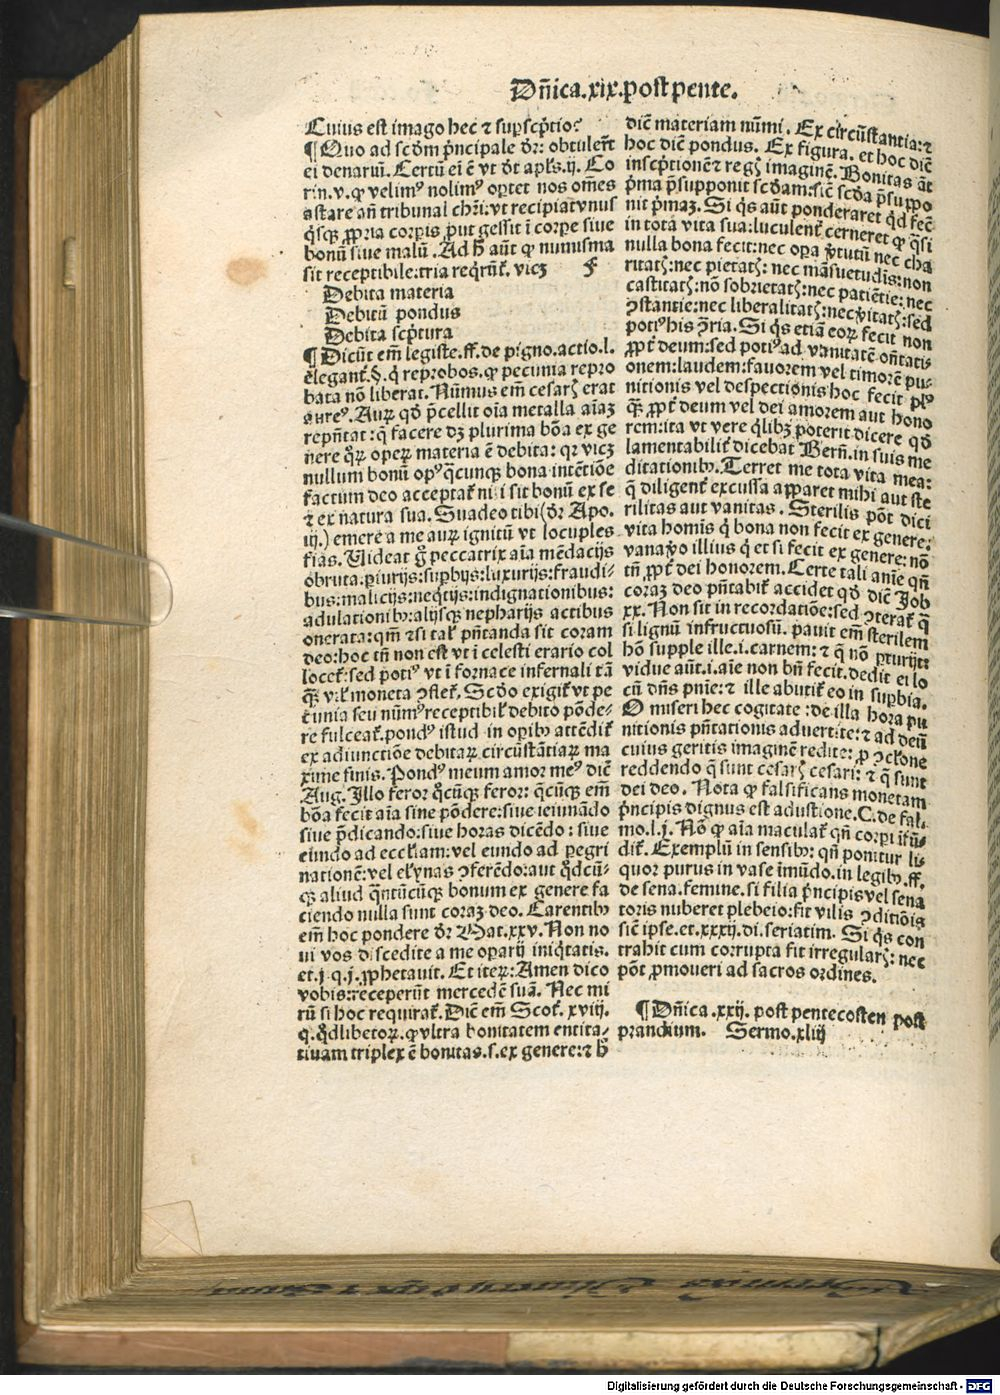 Dn̄ica.xix.post pente.
Cuius est imago hec ⁊ suꝑscp̄tio?
¶ Quo ad scd̄m pͥncipale dr̄: obtulerūt
ei denariū. Certū ei ē vt dr̄t apl's.ij. Co
rin.v. ꝙ velimꝰ nolimꝰ oꝑtet nos om̄es
astare an̄ tribunal chr̄i: vt recipiat vnus
qͥsqꝫ ꝓpria corꝑis ꝓut gessit ī corꝑe siue
bonū siue malū. Ad h̄ aūt ꝙ numisma
sit receptibile: tria reqͥrūt᷑. vicꝫ F
Debita materia
Debitū pondus
Debita scp̄tura
¶ Dicūt em̄ legiste.ff.de pigno.actio.l.
elegant᷑.§.qͥ reprobos. ꝙ pecunia repro
bata nō liberat. Nūmus em̄ cesarꝭ erat
aureꝰ. Auꝝ qd̄ p̄cellit oīa metalla aīaꝫ
rep̄ntat: q̄ facere dꝫ plurima bōa ex ge
nere qͥꝝ operꝝ materia ē debita: qꝛ vicꝫ
nullum bonū opꝰ qͥcunqꝫ bona intētiōe
factum deo acceptat᷑ nisi sit bonū ex se
⁊ ex natura sua. Suadeo tibi (dr̄ Apo.
iij.) emere a me auꝝ ignitū vt locuples
fias. Videat gͦ peccatrix aīa mēdacijs
obruta. ꝑiurijs: suꝑbijs: luxurijs: fraudi-
bus: malicijs: neqͥtijs: indignationibus:
adulationibꝰ: alijsqꝫ nepharijs actibus
onerata: qm̄ ⁊ si tal' p̄ntanda sit coram
deo: hoc tn̄ non est vt ī celesti erario col
locet᷑: sed potiꝰ vt ī fornace infernali tā
qꝫ vil' moneta ↄflet᷑. Scd̄o exigit᷑ vt pe
cunia seu nūmꝰ receptibil' debito pōde-
re fulceat᷑. pondꝰ istud in oꝑibꝰ attēdit᷑
ex adiunctiōe debitaꝝ circūstātiaꝝ ma
xime finis. Pondꝰ meum amor meꝰ dic̄
Aug. Illo feror qͦcūqꝫ feror: qͥcūqꝫ em̄
bōa fecit aīa sine pōdere: siue ieiunādo
siue p̄dicando: siue horas dicēdo: siue
eundo ad eccl'iam: vel eundo ad ꝑegri
nationē: vel el'ynas ↄferēdo: aut qͥdcū-
qꝫ aliud qͣntūcūqꝫ bonum ex genere fa
ciendo nulla sunt coraꝫ deo. Carentibꝰ
em̄ hoc pondere dr̄ Mat.xxv. Non no
ui vos discedite a me oꝑarij iniqͥtatis.
et.j.q.j. ꝓphetauit. Et iteꝝ: Amen dico
vobis: receperūt mercedē suā. Nec mi
rū si hoc requirat᷑. Dic̄ em̄ Scot᷑. xviij.
q. qͥdlibetoꝝ. ꝙ vltra bonitatem entita-
tiuam triplex ē bonitas.s.ex genere: ⁊ h̄
dic̄ materiam nūmi. Ex circūstantia: ⁊
hoc dic̄ pondus. Ex figura. et hoc dic̄
inscp̄tionē ⁊ regꝭ imaginē. Bonitas aūt
pͥma p̄supponit scd̄am: sic̄ scd̄a p̄suppo
nit pͥmaꝫ. Si qͥs aūt ponderaret qͥd fec̄
in tota vita sua: luculent᷑ cerneret ꝙ qͣsi
nulla bona fecit: nec oꝑa v̓tutū nec cha
ritatꝭ: nec pietatꝭ: nec māsuetudīs: non
castitatꝭ: nō sobrietatꝭ: nec patiētie: nec
ↄstantie: nec liberalitatꝭ: nec v̓itatꝭ: sed
potiꝰ his ↄ̄ria. Si qͥs etiā eoꝝ fecit non
ꝓpt᷑ deum: sed potiꝰ ad vanitatē oñtati-
onem: laudem: fauorem vel timorē pu-
nitionis vel despectionis hoc fecit plꝰ
qꝫ ꝓpt᷑ deum vel dei amorem aut hono
rem: ita vt vere qͥlibꝫ poterit dicere qd̄
lamentabilit᷑ dicebat Bern̄. in suis me
ditationibꝰ. Terret me tota vita mea:
q̄ diligent᷑ excussa apparet mihi aut ste
rilitas aut vanitas. Sterilis pōt dici
vita homīs qͥ bona non fecit ex genere:
vana v̓o illius qͥ et si fecit ex genere: nō
tn̄ ꝓpt᷑ dei honorem. Certe tali anīe qn̄
coraꝫ deo p̄ntabit᷑ accidet qd̄ dic̄ Job
xx. Non sit in recordatiōe: sed ↄterat᷑ qͣ
si lignū infructuosū. pauit em̄ sterilem
hō supple ille.i.carnem: ⁊ q̄ nō ꝑturijt:
vidue aūt.i.aīe non bn̄ fecit. dedit ei lo
cū dn̄s pn̄ie: ⁊ ille abutit᷑ eo in suꝑbia.
O miseri hec cogitate: de illa hora pu
nitionis p̄ntationis aduertite: ⁊ ad deū
cuius geritis imaginē redite: ꝑ ↄc̄lone
reddendo q̄ sunt cesarꝭ cesari: ⁊ q̄ sunt
dei deo. Nota ꝙ falsificans monetam
pͥncipis dignus est adustione. C. de fal.
mo.l.j. Nō ꝙ aīa maculat᷑ qn̄ corꝑi īfū-
dit᷑. Exemplū in sensibꝰ: qn̄ ponitur li-
quor purus in vase īmūdo. in legibꝰ.ff.
de sena. femine. si filia pͥncipis vel sena
toris nuberet plebeio: fit vilis ↄditiōis
sic̄ ipse. et.xxxij.di.seriatim. Si qͥs con
trahit cum corrupta fit irregularꝭ: nec
pōt ꝓmoueri ad sacros ordines.
¶ Dn̄ica.xxij. post pentecosten post
prandium. Sermo.xliij
Digitalisierung gefördert durch die Deutsche Forschungsgemeinschaft - DFG